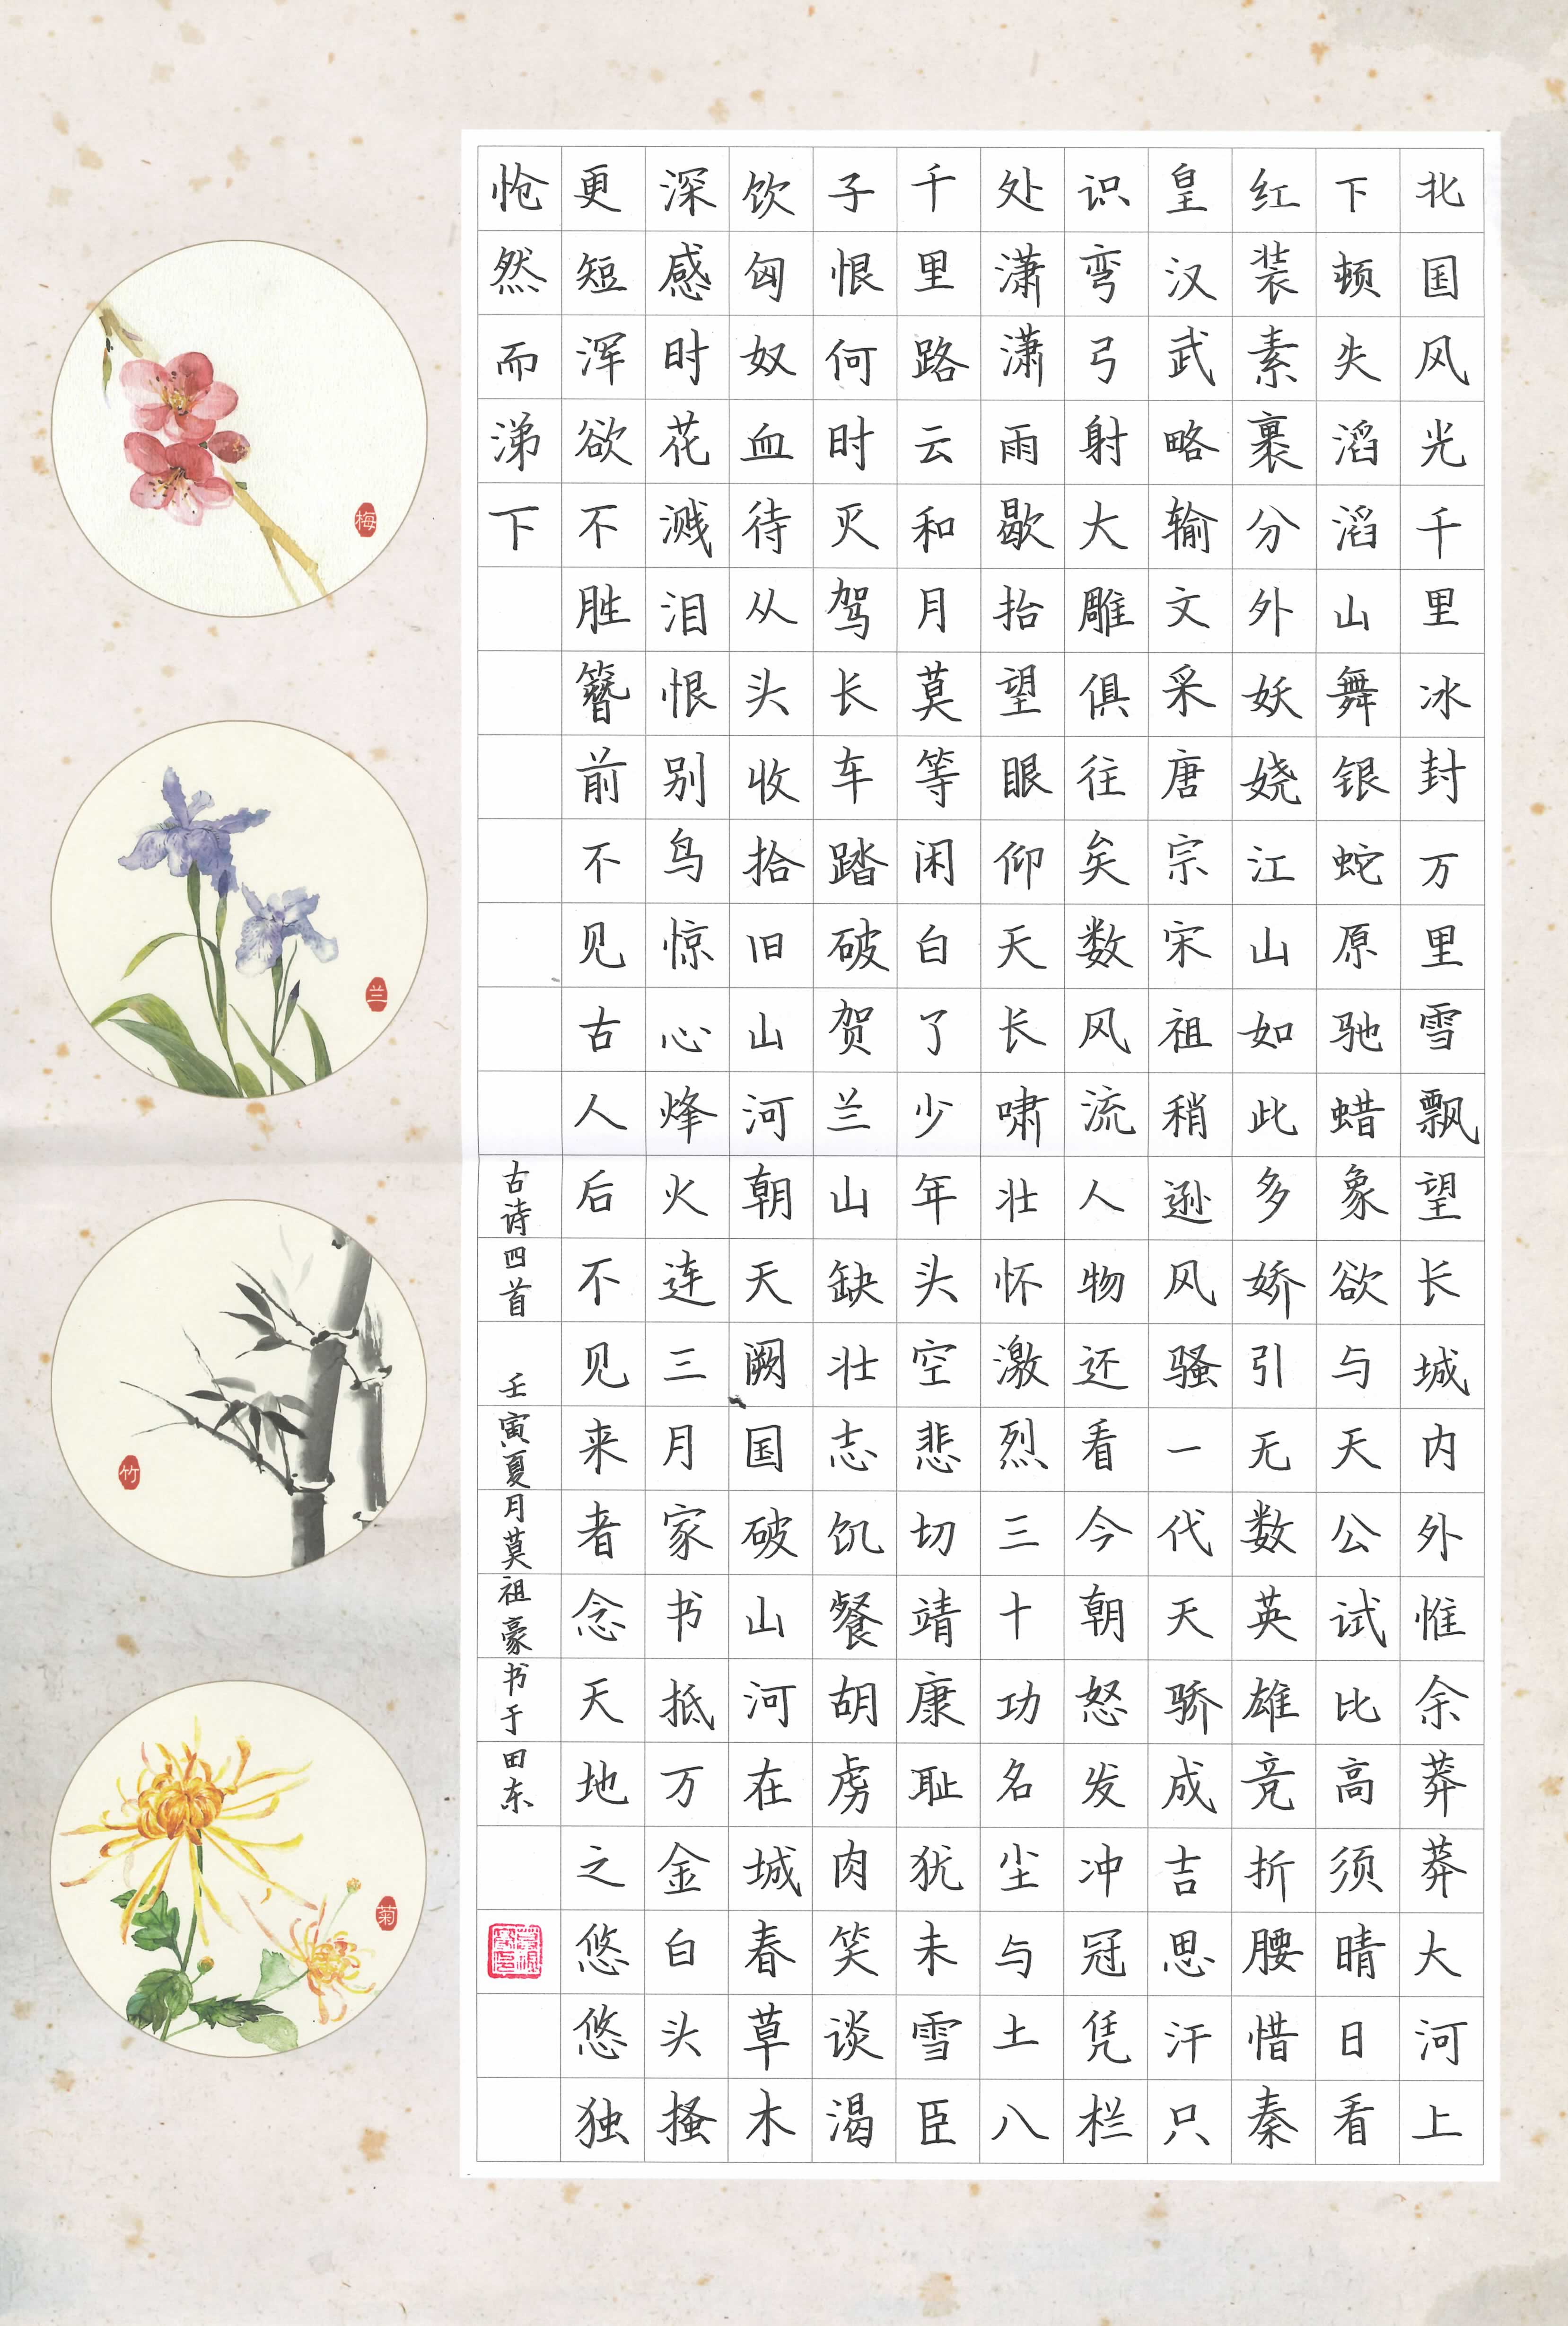 北国风光千里冰封万里雪飘望长城内外惟余莽莽大河上
下顿失滔滔山舞银蛇原驰蜡象欲与天公试比高须晴日看
红装素裹分外妖娆江山如此多娇引无数英雄竞折腰惜秦
皇汉武略输文采唐宗宋祖稍逊风骚一代天骄成吉思汗只
识弯弓射大雕俱往矣数风流人物还看今朝怒发冲冠凭栏
处潇潇雨歇抬望眼仰天长啸壮怀激烈三十功名尘与土八
千里路云和月莫等闲白了少年头空悲切靖康耻犹未雪臣
子恨何时灭驾长车踏破贺兰山缺壮志饥餐胡虏肉笑谈渴
饮匈奴血待从头收拾旧山河朝天阙国破山河在城春草木
深感时花溅泪恨别鸟惊心烽火连三月家书抵万金白头搔
更短浑欲不胜簪前不见古人后不见来者念天地之悠悠独
怆然而涕下 古诗四首 壬寅夏月莫祖豪书于田东
梅
兰
竹
菊